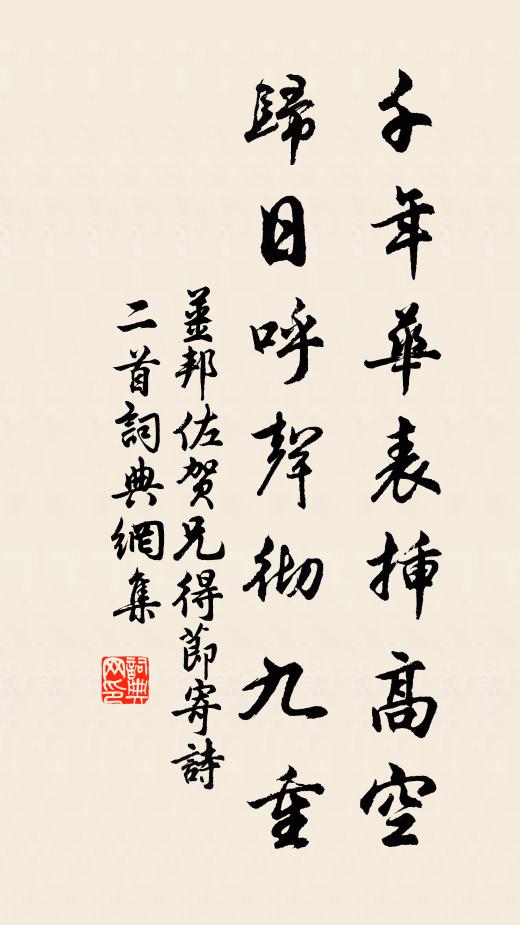 千年華表插高空
歸日呼聲徹九重
薑邦佐賀兄得節寄詩
二首詞典網集
詞典网印